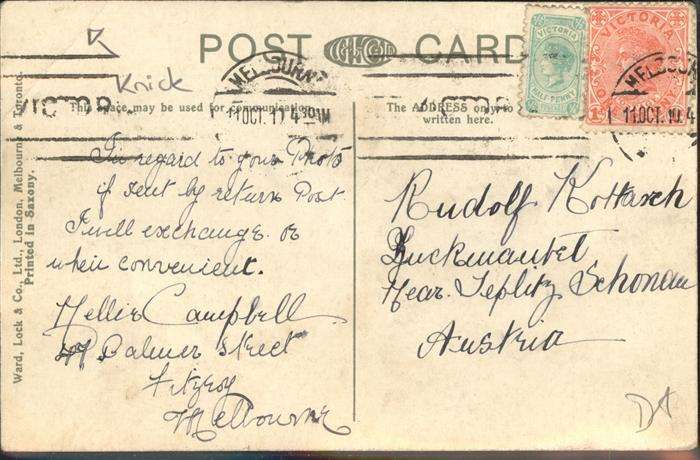 POST CARD
Knick
VICTORIA
HALF PENNY
VICTORIA
MELBOURNE
11 OCT. 11 4 30AM
MELBOU
11 OCT. 10 4
This space may be used for communication
The ADDRESS only to
written here.
In regard to your Photo
if sent by return Post
I will exchange or
when convenient.
Nellie Campbell
Palmer Street
Fitzroy
Melbourne
Rudolf Kottasch
Zuckmantel
Near Teplitz Schonau
Austria
Ward, Lock & Co., Ltd., London, Melbourne & Toronto.
Printed in Saxony.